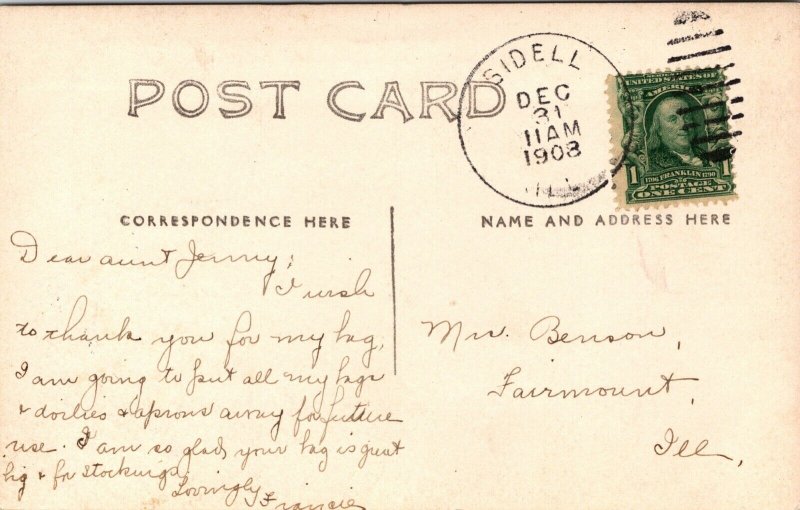 POST CARD
SIDELL
DEC
31
11AM
1908
ILL.
UNITED STATES OF
AMERICA
1706 FRANKLIN 1790
1 1
POSTAGE
ONE CENT
CORRESPONDENCE HERE
NAME AND ADDRESS HERE
Dear aunt Jenny;
I wish
to thank you for my bag,
I am going to put all my bags
& doilies & aprons away for future
use. I am so glad your bag is great
big & for stockings.
Lovingly Francie
Mrs. Benson,
Fairmount,
Ill,